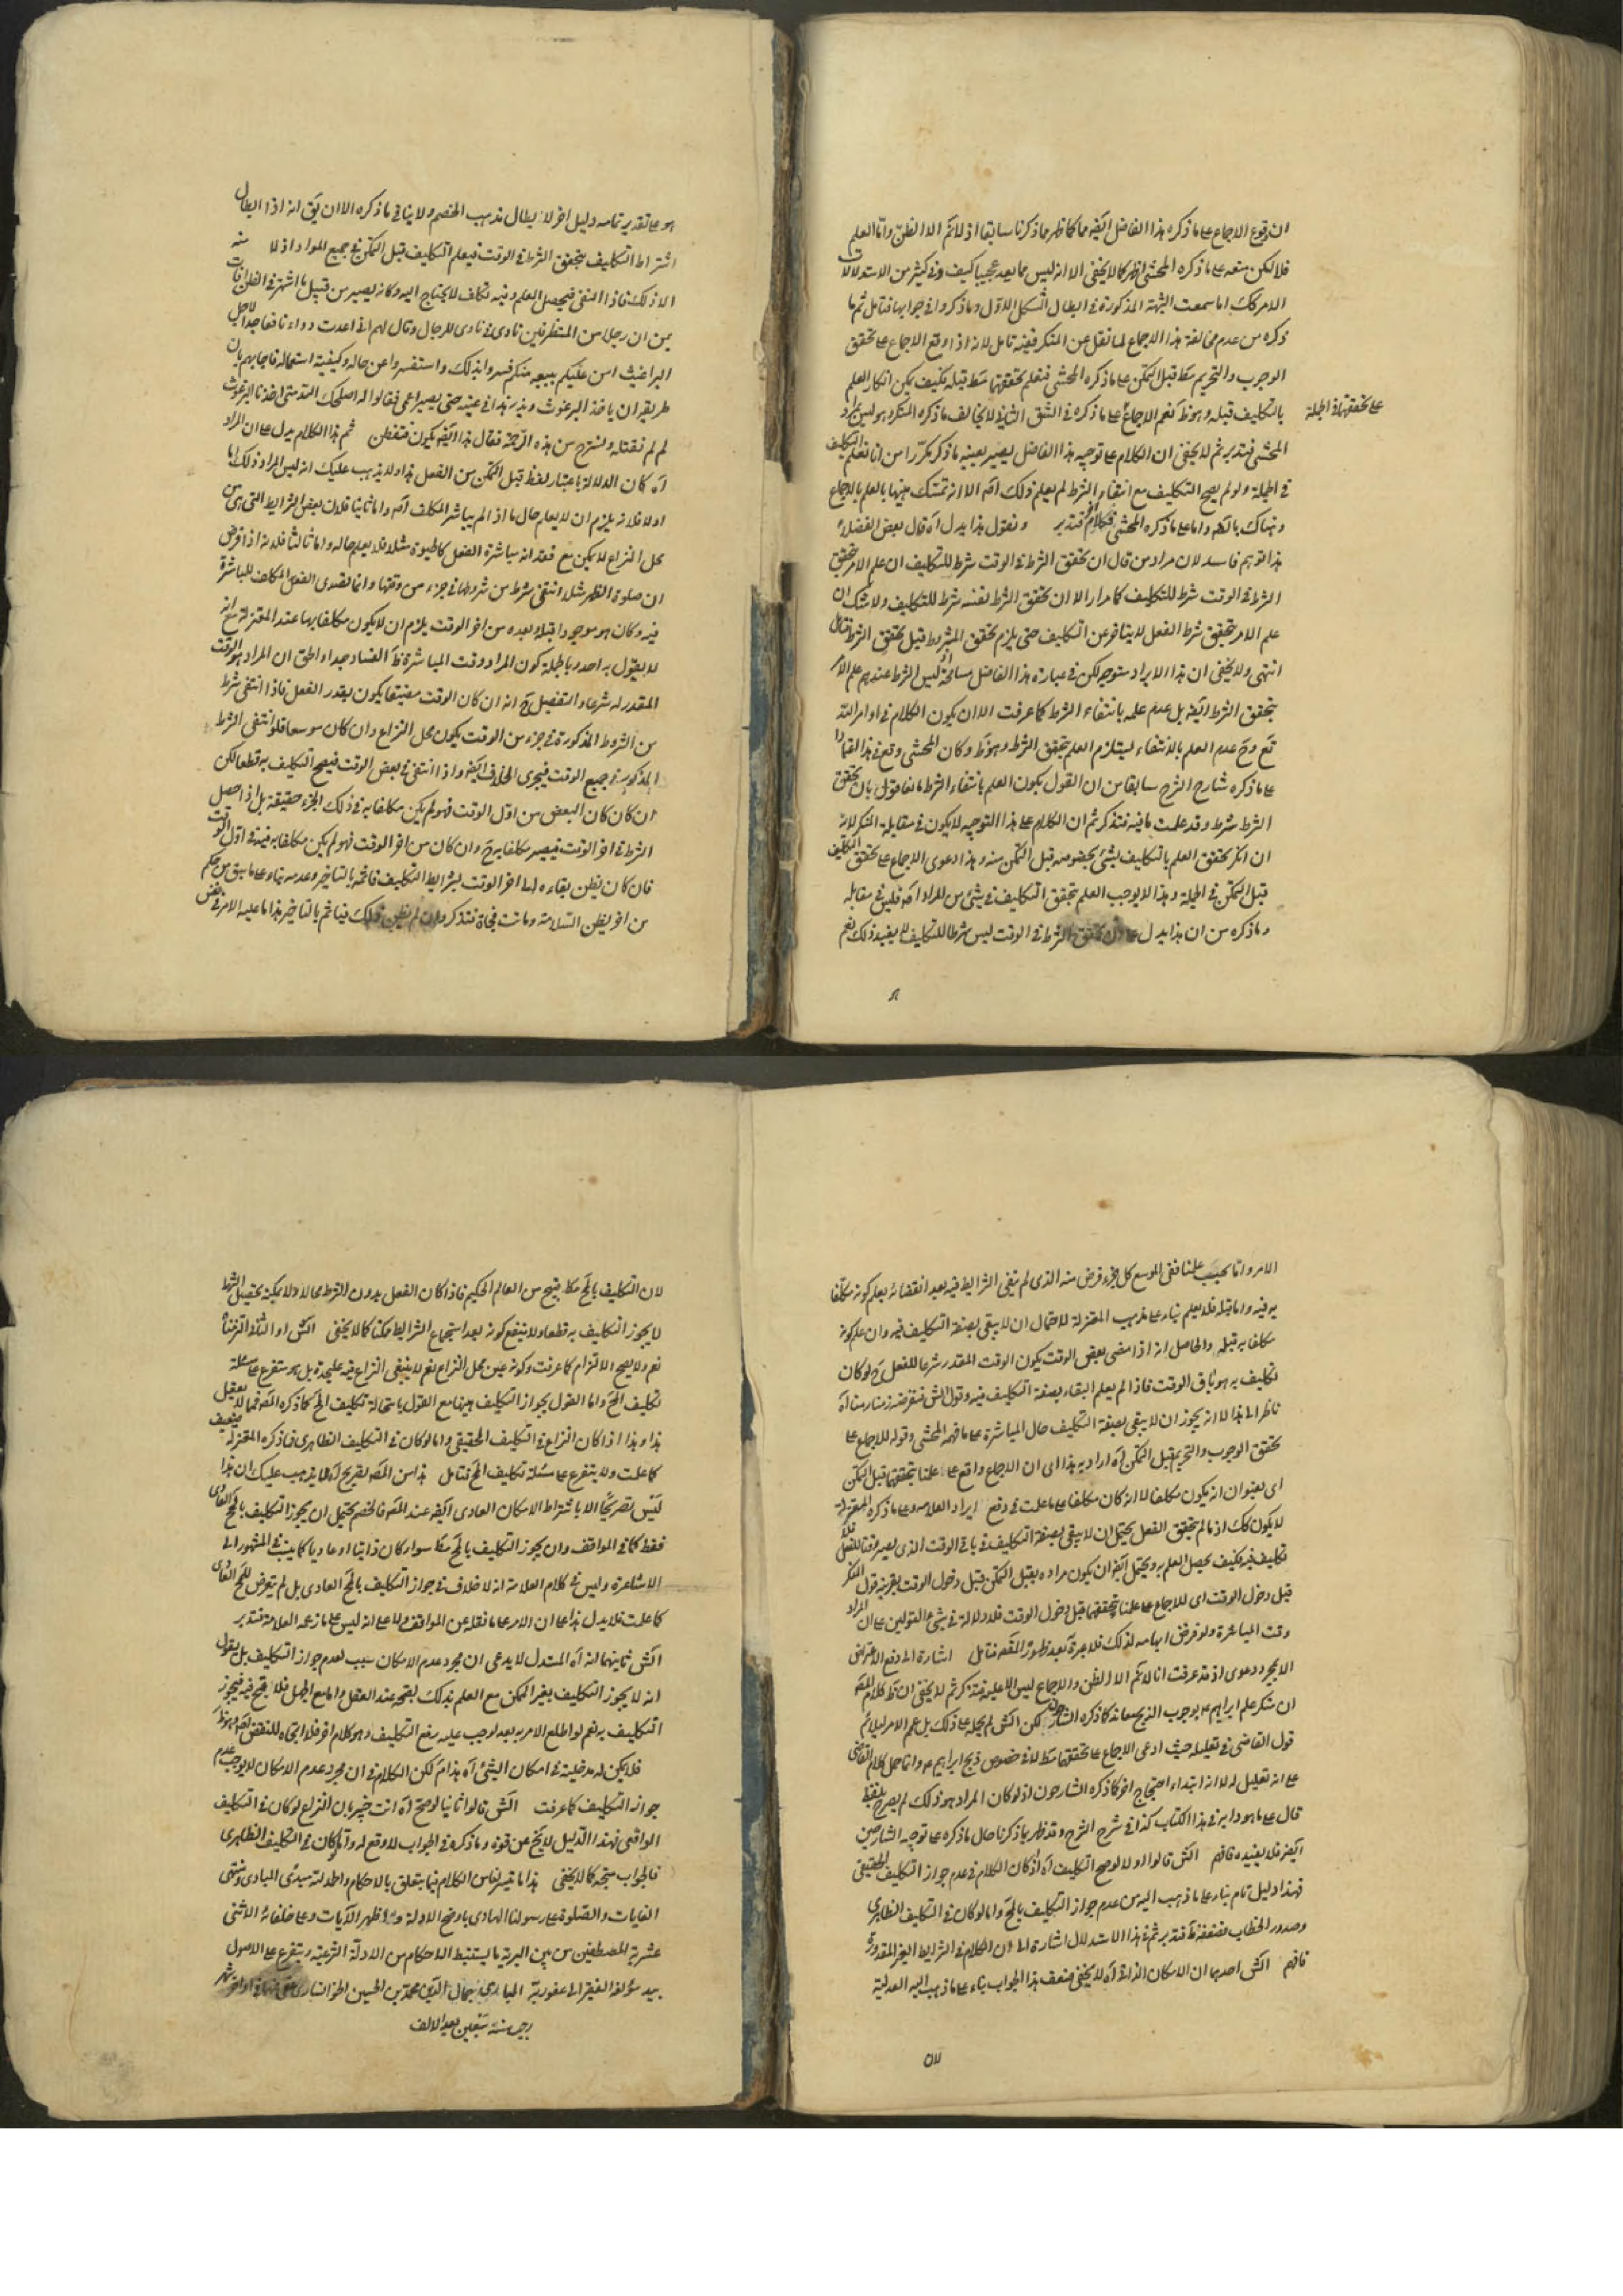 ان وقوع الاجماع على ما ذكره هذا الفاضل ايضه مما كما ظهر مما ذكرنا سابقا اذ لا تم الا الظن واما العلم
فلا لكن منعه على ما ذكره المحشى اظهر كما لا يخفى الا انه ليس مما يعد عجيبا كيف وفى كثير من الاستدلالات
الامر كك اما سمعت الشبهة المذكورة فى ابطال الشكل الاول وما ذكروا فى جوابها فتامل ثم ما
ذكره من عدم مخالفة هذا الاجماع لما نقل عن المنكر ففيه تامل لانه اذا وقع الاجماع على تحقق
الوجوب والتحريم مط قبل التمكن على ما ذكره المحشى فنعلم تحققهما مط قبله فكيف يمكن انكار العلم
بالتكليف قبله وهو ظ نعم الاجماع على ما ذكره فى الشق الثانى لا يخالف ما ذكره المنكر وهو ليس مراد
على تحققهما فى الجملة
المحشى فتدبر ثم لا يخفى ان الكلام على توجيه هذا الفاضل يصير بعينه ما ذكر مكررا من انا نعلم التكليف
فى الجملة ولو لم يصح التكليف مع انتفاء الشرط لم يعلم ذلك اصه الا انه تمسك هيهنا بالعلم بالاجماع
وهناك بالظه واما على ما ذكره المحشى فكلام فتدبر ونقول هذا يدل اه قال بعض الفضلاء
هذا توهم فاسد لان مراد من قال ان تحقق الشرط فى الوقت شرط للتكليف ان علم الامر بتحقق
الشرط فى الوقت شرط للتكليف كما مر الا ان تحقق الشرط نفسه شرط للتكليف ولا شك ان
علم الامر بتحقق شرط الفعل لا يتاخر عن التكليف حتى يلزم تحقق المشروط قبل تحقق الشرط فتامل
انتهى ولا يخفى ان هذا الايراد متوجه لكن فى عبارة هذا الفاضل مسامحة اذ ليس الشرط عندهم علم الامر
بتحقق الشرط ايضه بل عدم علمه بانتفاء الشرط كما عرفت الا ان يكون الكلام فى اوامر الله
تع وح عدم العلم بالانتفاء يستلزم العلم بتحقق الشرط وهو ظ وكان المحشى وقع فى هذا القام
على ما ذكره شارح الشرح سابقا من ان القول بكون العلم بانتفاء الشرط مانعا قول بان تحقق
الشرط شرط وقد علمت ما فيه فتذكر ثم ان الكلام على هذا التوجيه لا يكون فى مقابلة المنكر لانه
ان انكر تحقق العلم بالتكليف بشئ بخصوصه قبل التمكن منه وهذا دعوى الاجماع على تحقق التكليف
قبل التمكن فى الجملة وهذا لا يوجب العلم بتحقق التكليف فى شئ من المواد اصه فليس فى مقابله
وما ذكره من ان هذا يدل على ان تحقق الشرط فى الوقت ليس شرطا للتكليف لا يفيد ذلك نعم
هو على تقدير تمامه دليل اخر لابطال مذهب الخصم ولا ينافى ما ذكره الا ان يق انه اذا ابطال
اشتراط التكليف بتحقق الشرط فى الوقت فيعلم التكليف قبل التمكن فى جميع المواد اذ لا منه
الا ذلك فاذا انتفى فيحصل العلم وفيه تكلف لا يحتاج اليه وكانه يصير من قبيل ما اشتهر فى الظرافات
من ان رجلا من المتظرفين نادى فى نادى للرجال وقال لهم انى اعدت دواء نافعا جدا لاجل
البراغيث امن عليكم ببيعه منكم فسروا بذلك واستفسروا عن حاله وكيفية استعماله فاجابهم بان
طريقه ان ياخذ البرغوث ويذر هذا فى عينه حتى يصير اعمى فقالوا له اصلحك الله متى اخذنا البرغوث
لم لم نقتله ونستريح من هذه الزحمة فقال هذا ايضه يكون فتفطن ثم هذا الكلام يدل على ان المراد
اه كان الدلالة باعتبار لفظ قبل التمكن من الفعل هذا ولا يذهب عليك انه ليس المراد ذلك اما
اولا فلانه يلزم ان لا يعلم حال ما اذا لم يباشر المكلف اصه واما ثانيا فلان بعض الشرايط التى هى من
محل النزاع لا يمكن مع فقدانه مباشرة الفعل كالحيوة مثلا فلا يعلم حاله واما ثالثا فلانه اذا فرض
ان صلوة الظهر مثلا انتفى شرط من شروطها فى جزء من وقتها وانما تصدى الفعل المكلف للمباشرة
فيه وكان هو موجودا قبله وبعده من اخر الوقت يلزم ان لا يكون مكلفا بها عند المعتزلة مع انه
لا يقول به احد وبالجملة كون المراد وقت المباشرة ظ الفساد جدا والحق ان المراد هو الوقت
المقدر له شرعا والتفصيل ح انه ان كان الوقت مضيقا يكون بقدر الفعل فاذا انتفى شرط
من الشروط المذكورة فى جزء من الوقت يكون محل النزاع وان كان موسعا فلو انتفى الشرط
المذكور فى جميع الوقت فيجرى الخلاف ايضه واذا انتفى فى بعض الوقت فيصح التكليف به قطعا لكن
ان كان كان البعض من اول الوقت فهو لم يكن مكلفا به فى ذلك الجزء حقيقة بل اذا حصل
الشرط فى اخر الوقت فيصير مكلفا به ح وان كان من اخر الوقت فهو لم يكن مكلفا به فيه فى اول الوقت
فان كان يظن بقاءه الى اخر الوقت بشرايط التكليف فاثمه بالتاخير وعدمه بناء على ما سبق من حكم
من اخر بظن السلامة ومات فجاة فتذكر وان لم يظن ذلك فياثم بالتاخير هذا ما عليه الامر فى نفس
الامر واما بحسب علمنا ففى الموسع كل جزء فرض منه الذى لم تنفى الشرايط فيه بعد انقضائه يعلم كونه مكلفا
به فيه واما قبله فلا يعلم بناء على مذهب المعتزلة لاحتمال ان لا يبقى بصفة التكليف فيه وان علم كونه
مكلفا به قبله والحاصل انه اذا مضى بعض الوقت يكون الوقت المقدر شرعا للفعل ح لو كان
تكليف به هو باق الوقت فاذا لم يعلم البقاء بصفة التكليف فيه وقول الش فنفرضه زمنا زمنا اه
ناظر الى هذا لا انه يجوز ان لا يبقى بصفة التكليف حال المباشرة على ما فهمه المحشى وقوله للاجماع على
تحقق الوجوب والتحريم قبل التمكن اه اراد به هذا اى ان الاجماع واقع على علمنا بتحققهما قبل التمكن
اى بعنوان انه يكون مكلفا لا انه كان مكلفا على ما علمت فى دفع ايراد العلامة وعلى ما ذكره المعتزلة
لا يكون كك اذ ما لم يتحقق الفعل يحتمل ان لا يبقى بصفة التكليف فى باقى الوقت الذى يصير وقتا للفعل فلا
تكليف فيه فكيف يحصل العلم به ويحتمل ايضه ان يكون مراده بقبل التمكن قبل دخول الوقت بقرينة قول المنكر
قبل دخول الوقت اى للاجماع على علمنا بتحققهما قبل دخول الوقت فلا دلالة فى شئ من القولين على ان المراد
وقت المباشرة ولو فرض ايهامه لذلك فلا عبرة به بعد ظهور المقصه فتامل اشارة الى دفع الاعتراض
الا بمجرد دعوى اذ قد عرفت انا لا نم الا الظن والاجماع ليس الا عليه فتذكر ثم لا يخفى ان ظ كلام المصه
ان منكر علم ابراهيم ع بوجوب الذبح معاند كما ذكره الشارحون لكن الش لم يحمله على ذلك بل عمم الامر ليلائم
قول القاضى فى تعليله حيث ادعى الاجماع على تحققهما مط لا فى خصوص ذبح ابراهيم ع وانما حمل كلام القاضى
على انه تعليل له لا انه ابتداء احتجاج اخر كما ذكره الشارحون اذ لو كان المراد هو ذلك لم يصرح بلفظ
قال على ما هو دابه فى هذا الكتاب كذا فى شرح الشرح وقد ظهر بما ذكرنا حال ما ذكره على توجيه الشارحين
ايضه فلا نعيده فافهم الش قالوا اولا لو صح التكليف اه اذا كان الكلام فى عدم جواز التكليف الحقيقى
فهذا دليل تام بناء على ما ذهب اليه من عدم جواز التكليف بالمح واما لو كان فى التكليف الظاهرى
وصدور الخطاب فضعفه ظ فتدبر ثم فى هذا الاستدلال اشارة الى ان الكلام فى الشرايط الغير المقدورة
فافهم الش احدهما ان الامكان الذاتى اه لا يخفى ضعف هذا الجواب بناء على ما ذهب اليه العدلية
لان
لان التكليف بالمح مط قبيح من العالم الحكيم فاذا كان الفعل بدون الشرط محالا ولا يمكنه تحصيل الشرط
لا يجوز التكليف به قطعا ولا ينفع كونه بعد استجماع الشرايط ممكنا كما لا يخفى الش او الثانى التزمنا
نعم ولا يصح الالتزام كما عرفت وكونه عين محل النزاع نعم لا ينبغى النزاع فيه عليحدة بل هو متفرع على مسئلة
تكليف المح واما القول بجواز التكليف هيهنا مع القول باستحالة تكليف المح كما ذكره المصه فمما لا يعقل
هذا وهذا اذا كان النزاع فى التكليف الحقيقى واما لو كان فى التكليف الظاهرى فما ذكره المعتزلة ضعيف
كما علمت ولا يتفرع على مسئلة تكليف المح فتامل هذا من المصه تصريح اه لا يذهب عليك ان هذا
ليس تصريحا الا باشتراط الامكان العادى ايضه عند المصه فالخصم يحتمل ان يجوز التكليف بالمح العادى
فقط كما فى المواقف وان يجوز التكليف بالمح مط سواء كان ذاتيا او عاديا كما ينسب فى المشهور الى
الاشاعرة وليس فى كلام العلامة انه لا خلاف فى جواز التكليف بالمح العادى بل لم يتعرض للمح العادى
كما علمت فلا يدل هذا على ان الامر على ما نقله عن المواقف ولا على انه ليس على ما زعمه العلامة فتدبر
الش ثانيهما انه اه المستدل لا يدعى ان مجرد عدم الامكان سبب لعدم جواز التكليف بل يقول
انه لا يجوز التكليف بغير الممكن مع العلم بذلك بقبحه عند العقل واما مع الجهل فلا يقبح فيه فيجوز
التكليف به نعم لو اطلع الامر به بعد لوجب عليه رفع التكليف وهو كلام اخر فلا اتجاه للنقض اصه وهو ظ
فلا يمكن له مدخلية فى امكان الشئ اه هذا تم لكن الكلام فى ان مجرد عدم الامكان لا يوجب عدم
جواز التكليف كما عرفت الش قالوا ثانيا لو صح اه انت خبير بان النزاع لو كان فى التكليف
الواقعى فهذا الدليل لا يخ عن قوة وما ذكره فى الجواب لا وقع له واما لو كان فى التكليف الظاهرى
فالجواب متجه كما لا يخفى هذا ما تيسر لنا من الكلام فيما يتعلق بالاحكام والحمد لله مبدئ المبادى ومنتهى
الغايات والصلوة على رسولنا الهادى باوضح الادلة واظهر الآيات وعلى خلفائه الاثنى
عشرية المصطفين من بين البرية ما يستنبط الاحكام من الادلة الشرعية ويتفرع على الاصول
بيد مؤلفه الفقير الى عفو ربه البارى جمال الدين محمد بن الحسين الخوانسارى عفى عنهما فى اواخر شهر
رجب سنة تسعين بعد الالف